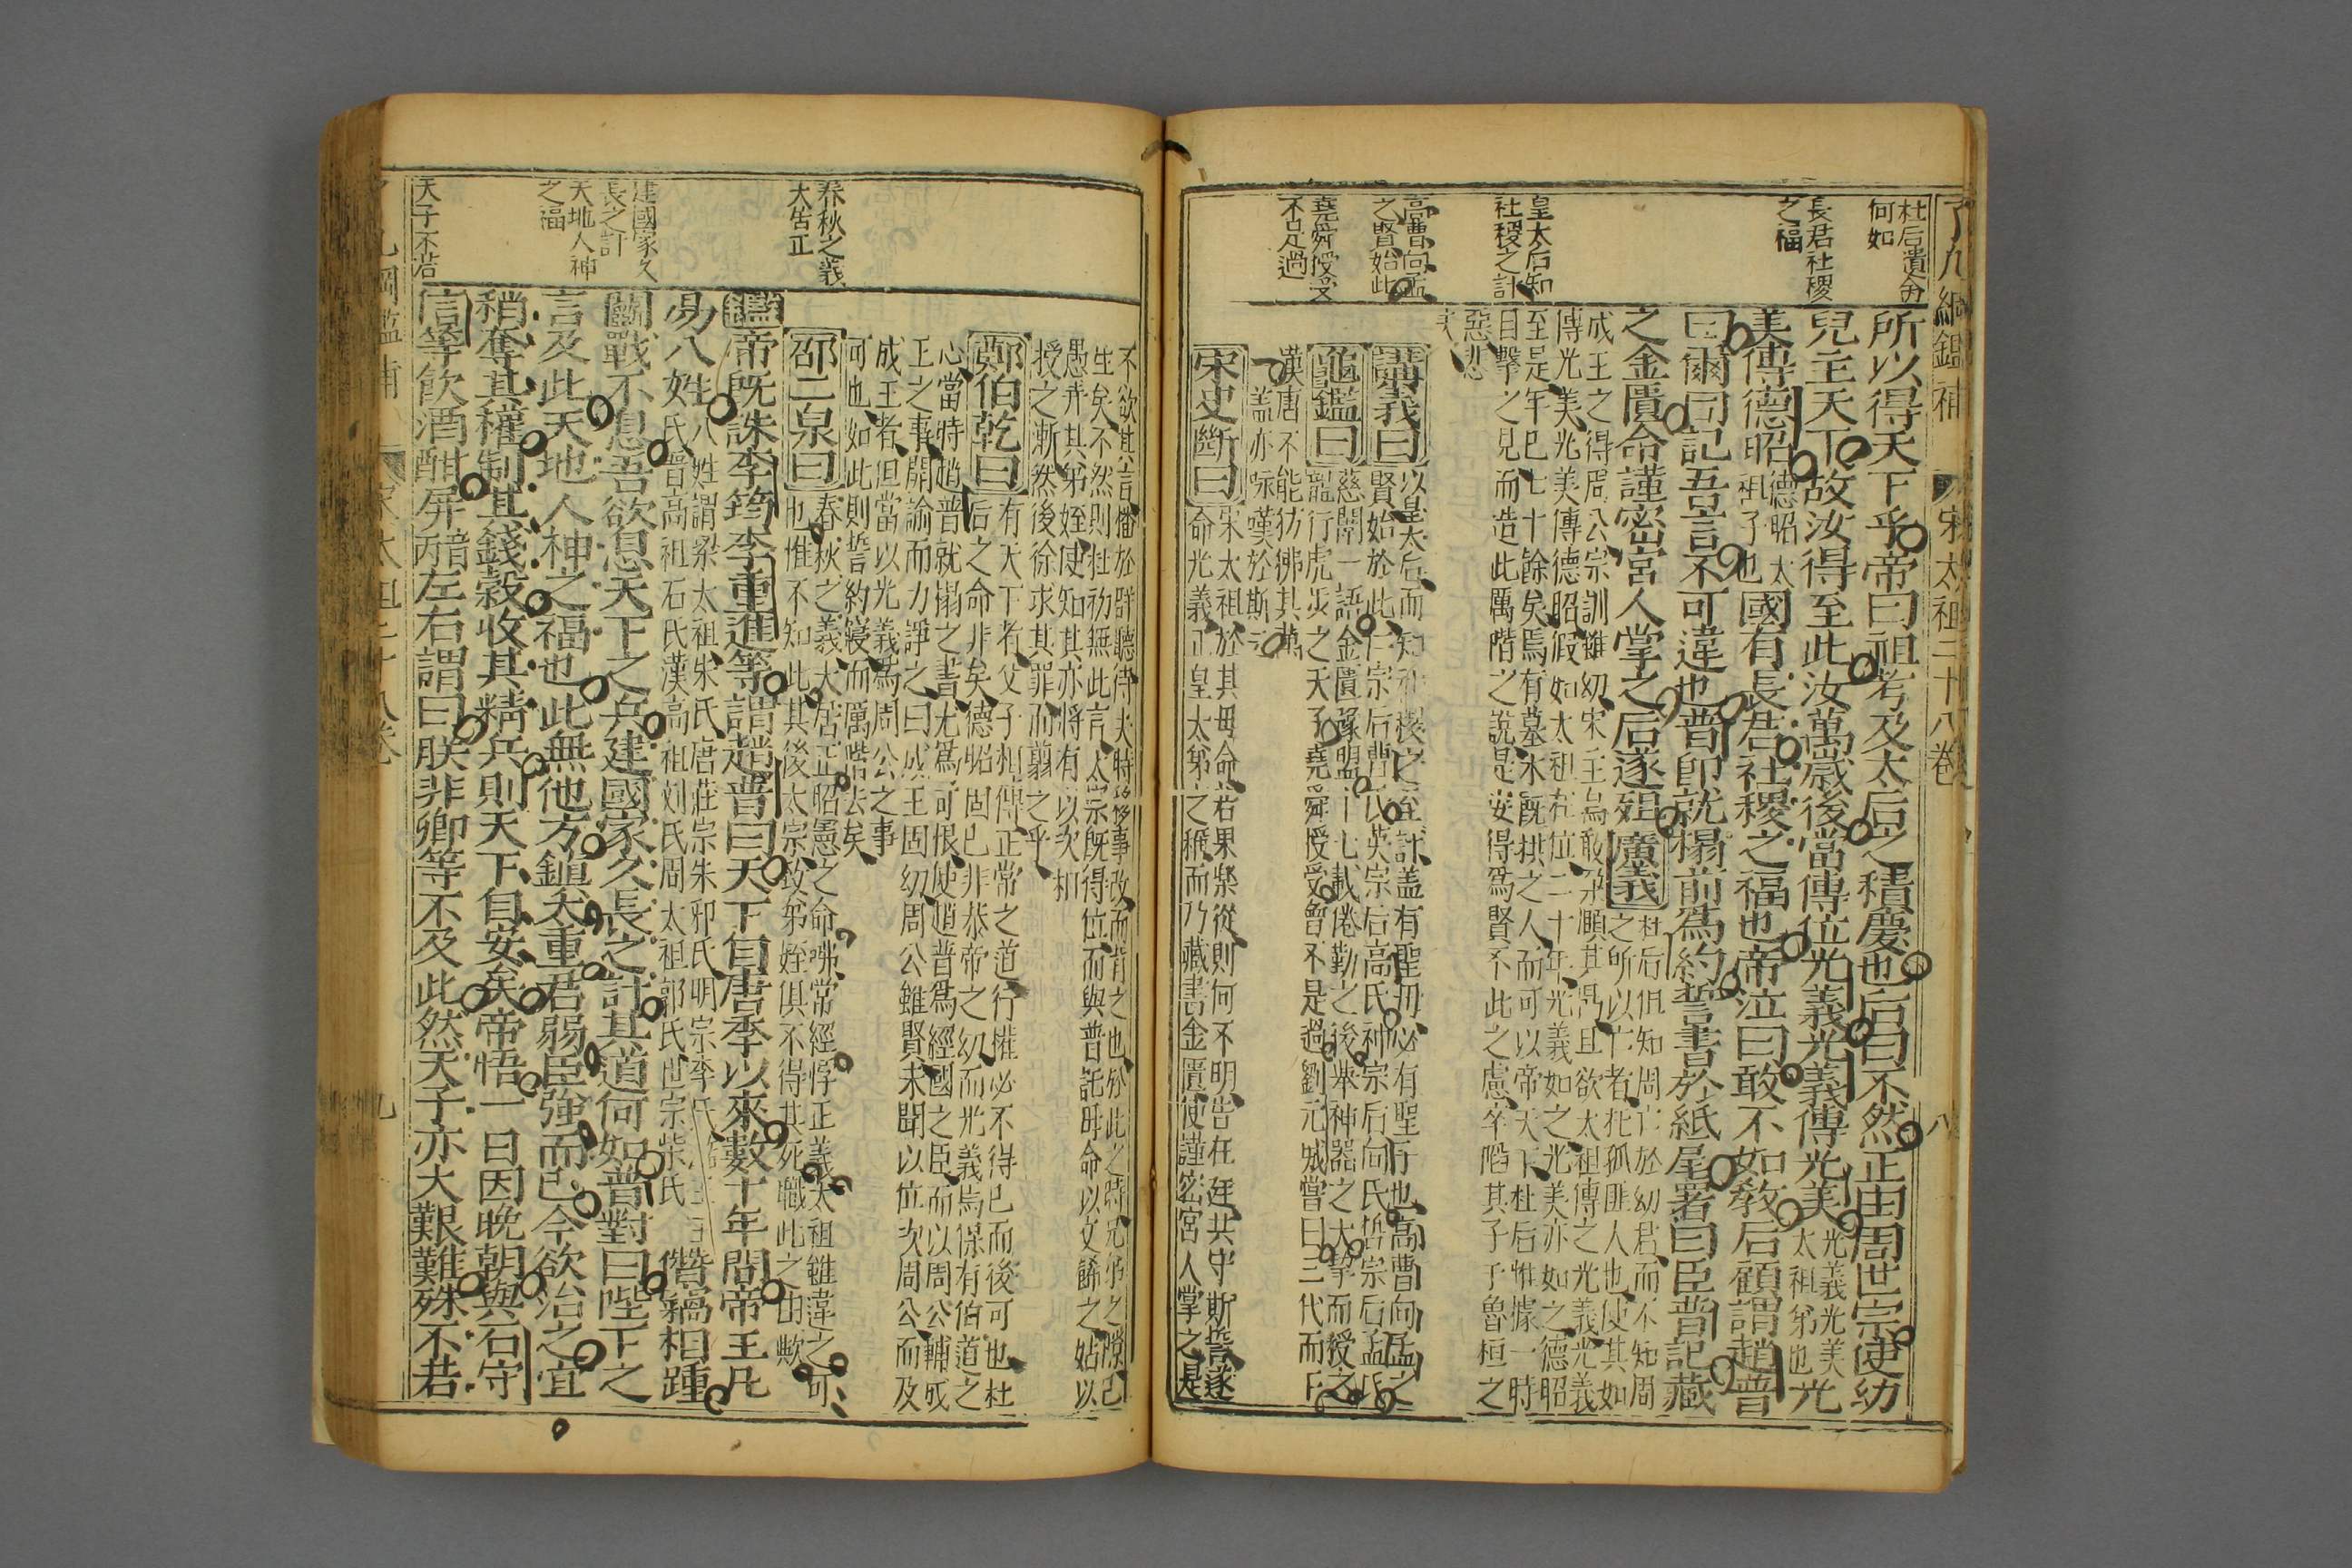 了凡綱鑑補
宋太祖二十八卷
八
杜后遺命
何如
長君社稷
之福
皇太后知
社稷之計
高曹向孟
之賢始此
堯舜授受
不足過
所以得天下乎帝曰祖考及太后之積慶也后曰不然正由周世宗使幼
兒主天下故汝得至此汝萬歲後當傳位光義光義傳光美光義光美太祖弟也光
美傳德昭德昭太祖子也國有長君社稷之福也帝泣曰敢不如教后顧謂趙普
曰爾同記吾言不可違也普即就榻前為約誓書於紙尾署曰臣普記藏
之金匱命謹密宮人掌之后遂殂廣義杜后但知周亡於幼君而不知周
之所以亡者托孤匪人也使其如
成王之得周公宗訓雖幼宋主烏敢朶頤其鼎且欲太祖傳之光義光義
傳光美光美傳德昭假如太祖在位二十年光義如之光美亦如之德昭
至是年巳七十餘矣焉有墓木既拱之人而可以帝天下杜后惟據一時
目擊之見而造此厲階之說是安得為賢不此之慮卒陷其子于魯桓之
惡悲
夫
講義曰以皇太后而知社稷之至計蓋有聖母必有聖子也高曹向孟之
賢始於此仁宗后曹氏英宗后高氏神宗后向氏哲宗后孟氏
龜鑑曰慈闈一語金匱豫盟十七載倦勤之後舉神器之大挚而授之
龍行虎步之天子堯舜授受曾不是過劉元城嘗曰三代而下
漢唐不能彷彿其萬
一蓋亦咏嘆於斯云
宋史斷曰宋太祖於其母命若果樂從則何不明告在廷共守斯誓遂
命光義正皇太弟之稱而乃藏書金匱使謹密宮人掌之是
不欲其言播於群聽待夫時移事改而背之也於此之時兄弟之隙已
生矣不然則杜初無此言太宗既得位而與普託母命以文餙之姑以
愚弄其弟姪使知其亦將有以次相
授之漸然後徐求其罪而翦之乎
鄭伯乾曰有天下者父子相傳正常之道行權必不得已而後可也杜
后之命非矣德昭固已非恭帝之幼而光義烏保有伯道之
心當時趙普就搨之書尤為可恨使趙普為經國之臣而以周公輔成
王之事開諭而力諍之曰成王固幼周公雖賢未聞以位次周公而及
成王者但當以光義為周公之事
可也如此則誓約寢而厲階去矣
邵二泉曰春秋之義大居正昭憲之命咈常經悖正義太祖雖違之可
也惟不知此其後太宗致弟姪俱不得其死職此之由歟
鑑帝既誅李筠李重進等謂趙普曰天下自唐季以來數十年間帝王凡
易八姓八姓謂梁太祖朱氏唐莊宗朱邪氏明宗李氏
氏晉高祖石氏漢高祖劉氏周太祖郭氏世宗柴氏僭竊相踵
鬪戰不息吾欲息天下之兵建國家久長之計其道何如普對曰陛下之
言及此天地人神之福也此無他方鎮太重君弱臣強而已今欲治之宜
稍奪其權制其錢穀收其精兵則天下自安矣帝悟一日因晚朝與石守
信等飲酒酣屏左右謂曰朕非卿等不及此然天子亦大艱難殊不若
春秋之義
大居正
建國家久
長之計
天地人神
之福
天子不若
九